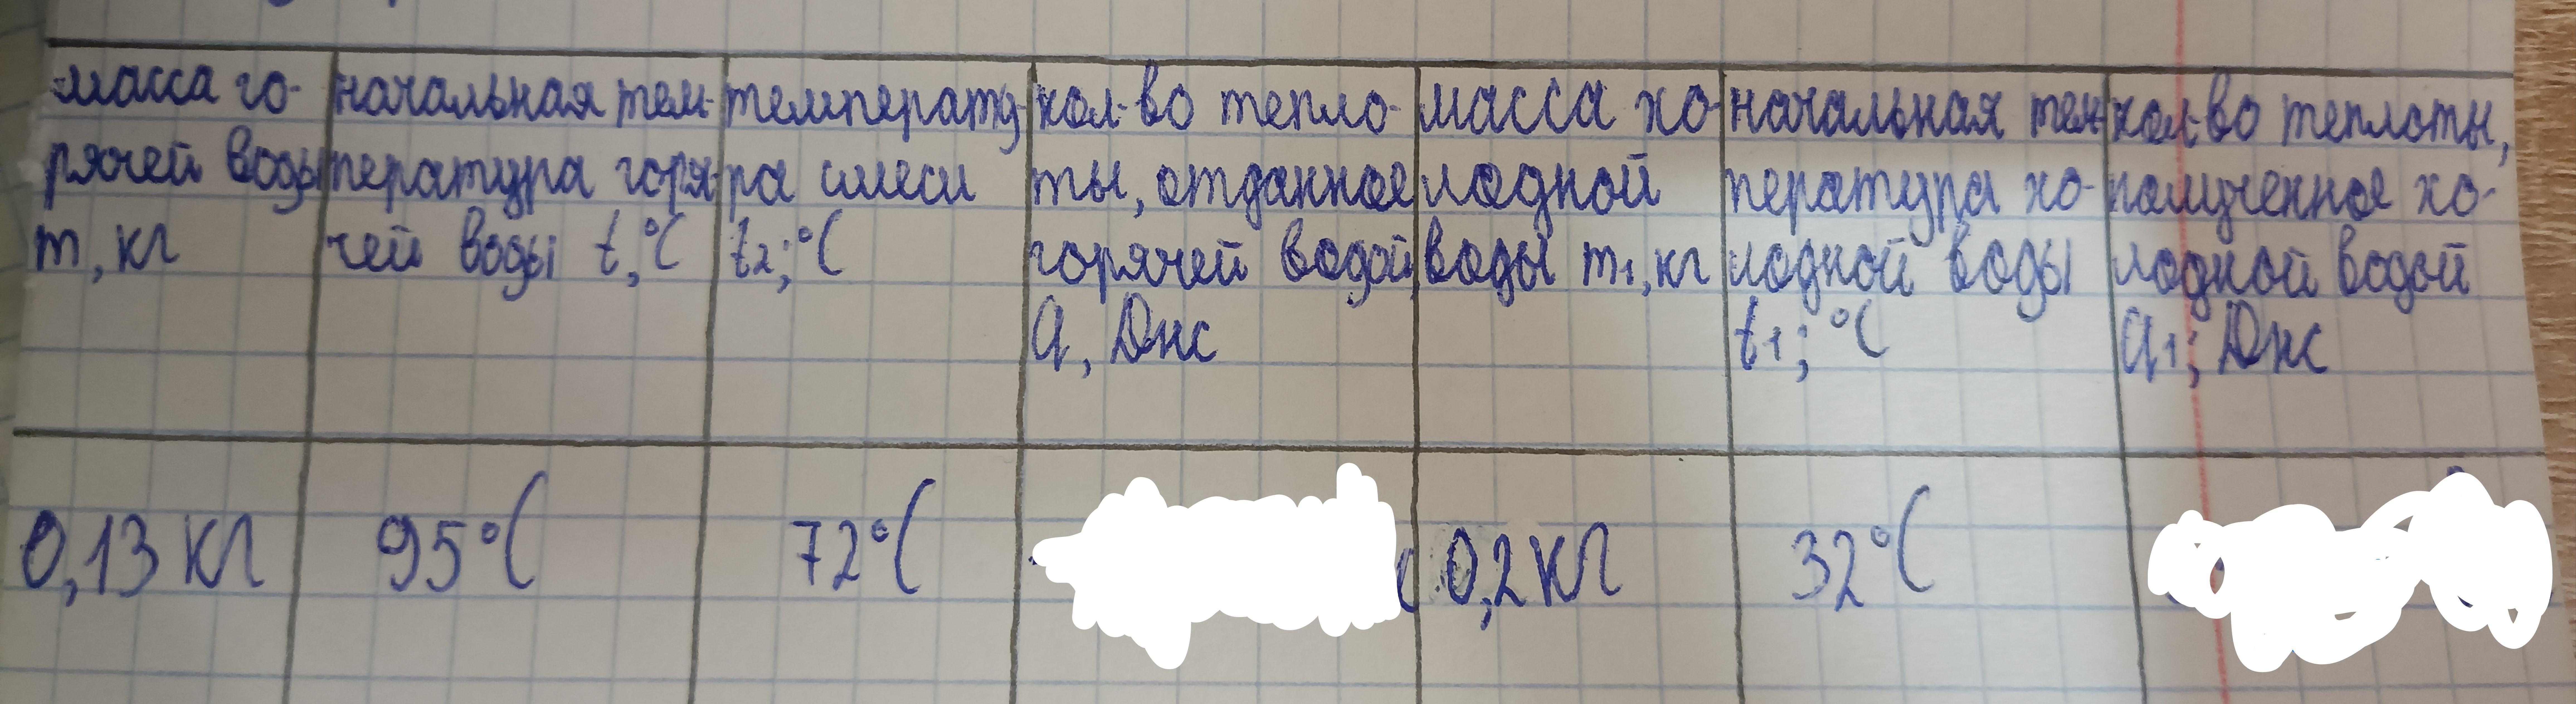 масса го-
рячей воды
m, кг
начальная тем-
пература горя-
чей воды t,°C
температу-
ра смеси
t2;°C
кол-во тепло-
ты, отданное
горячей водой,
Q, Дж
масса хо-
лодной
воды m1, кг
начальная тем-
пература хо-
лодной воды
t1;°C
кол-во теплоты,
полученное хо-
лодной водой
Q1; Дж
0,13 кг
95°C
72°C
0,2 кг
32°C